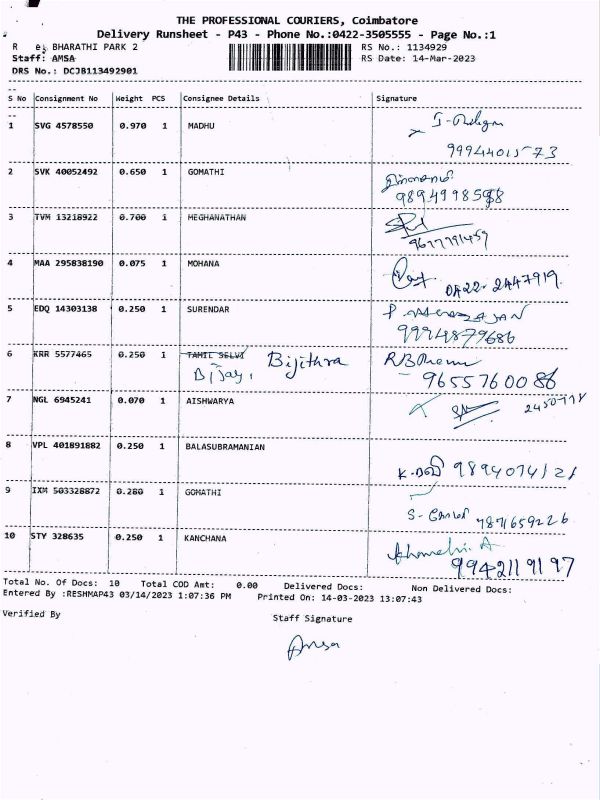 THE PROFESSIONAL COURIERS, Coimbatore
Delivery Runsheet - P43 - Phone No.:0422-3505555 - Page No.:1
BHARATHI PARK 2 RS No.: 1134929
Staff: AMSA RS Date: 14-Mar-2023
DRS No.: DCJB113492901
S No Consignment No Weight PCS Consignee Details Signature
1 SVG 4578550 0.970 1 MADHU
2 SVK 40052492 0.650 1 GOMATHI
3 TVM 13218922 0.700 1 MEGHANATHAN
9677791457
4 MAA 295838190 0.075 1 MOHANA
0422-2447919
5 EDQ 14303138 0.250 1 SURENDAR
9994879686
6 KRR 5577465 0.250 1 TAMIL SELVI Bijithra
9655760086
7 NGL 6945241 0.070 1 AISHWARYA
8 VPL 401891882 0.250 1 BALASUBRAMANIAN
9894074121
9 IXM 503328872 0.280 1 GOMATHI
7871659226
10 STY 328635 0.250 1 KANCHANA
9942119197
Total No. Of Docs: 10 Total COD Amt: 0.00 Delivered Docs: Non Delivered Docs:
Entered By :RESHMAP43 03/14/2023 1:07:36 PM Printed On: 14-03-2023 13:07:43
Verified By Staff Signature
Amsa